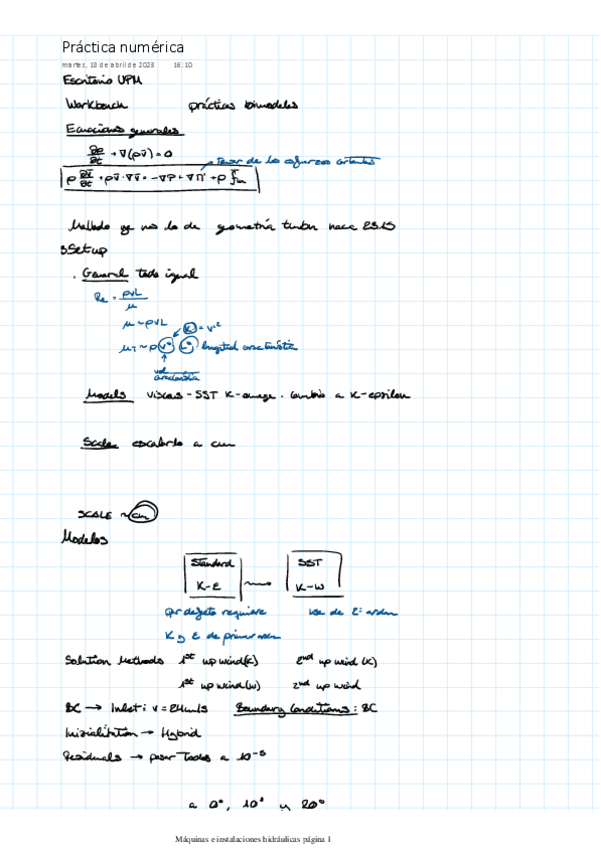 Práctica numérica
martes, 18 de abril de 2023 16:10
Escritorio UPM
Workbench prácticas bimodeles
Ecuaciones generales
∂ρ/∂t + ∇(ρv̄) = 0
tensor de los esfuerzos cortantes
ρ ∂v̄/∂t + ρv̄·∇v̄ = -∇P + ∇Π + ρ f̄m
Mallado ya nos lo da geometría tmbn nace 2315
3 Setup
. General todo igual
Re = ρvL/μ
μ ~ ρvL
K = v'²
μT ~ ρ v' L' longitud característica
vel característica
Models viscous - SST K-omega. cambio a K-epsilon
Scale escalarlo a cm
SCALE ~ cm
Modelos
Standard SST
K-ε K-W
por defecto requiere use de 2º orden
K y ε de primer orden
Solution Methods 1st upwind (K) 2nd upwind (K)
1st upwind (w) 2nd upwind
BC → Inlet: v = 24 m/s Boundary Conditions: BC
Inizialitation → Hybrid
Residuals → poner todos a 10⁻⁵
a 0°, 10° y 20°
Máquinas e instalaciones hidráulicas página 1